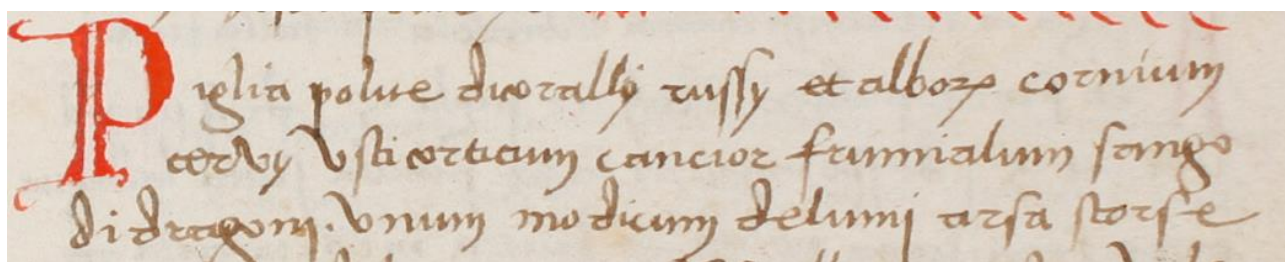 Piglia polue dicorallÿ russÿ et alboꝝ cornium
cervÿ vsti corticum cancior frumialum sango
di dragoni. vnum modicum delumi arsa scorse